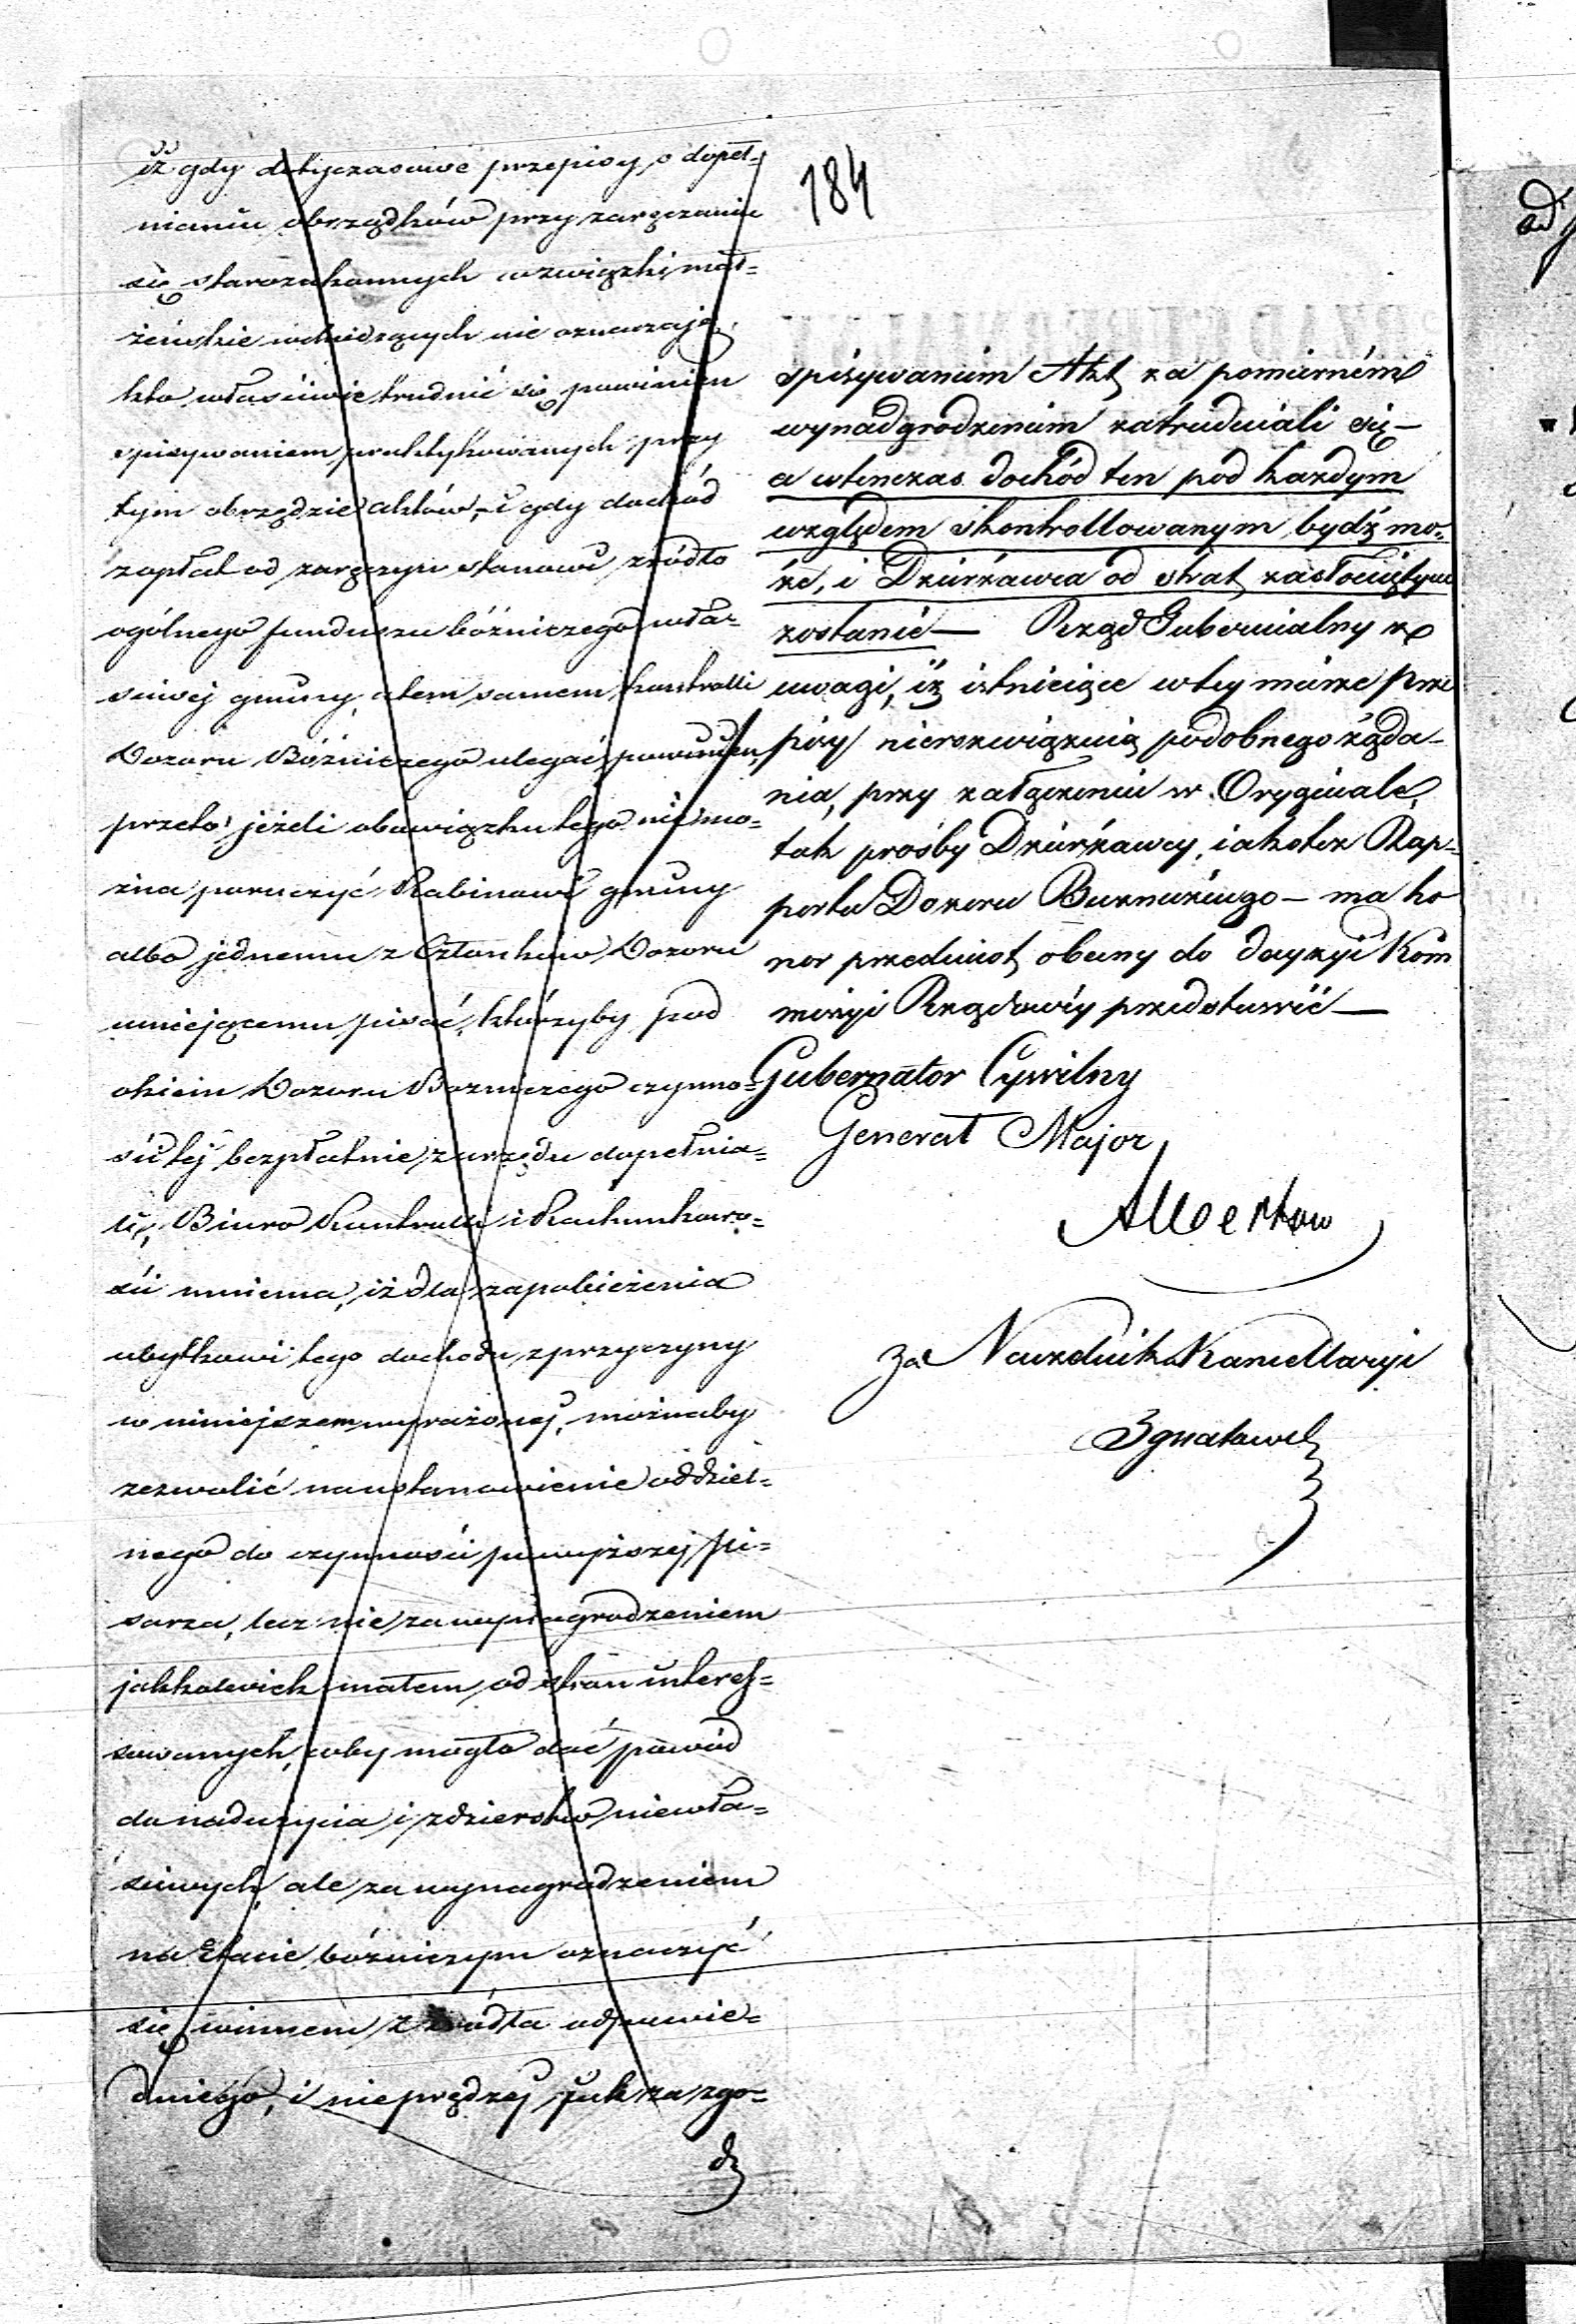 184
iż gdy dotychczasowe przepisy o dopeł=
nianiu obrządków przy zaręczaniu
się starozakonnych w związki mał=
żeńskie wchodzących nie oznaczają,
kto właściwie trudnić się powinien
spisywaniem praktykowanych przy
tym obrzędzie aktów, i gdy dochód
zapłat od zaręczyn stanowi źródło
ogólnego funduszu bóżniczego wła=
ściwej gminy, a tem samem kontrolli
Dozoru Bóżniczego ulegać powinien,
przeto jeżeli obowiązku tego nie mo=
żna poruczyć Rabinowi gminy
albo jednemu z Członków Dozoru
umiejącemu pisać, którzyby pod
okiem Dozoru Bożniczego czynno=
ści tej bezpłatnie z urzędu dopełnia=
li, Biuro Kontrolli i Rachunkowo=
ści mniema, iż dla zapobieżenia
ubytkowi tego dochodu z przyczyny
w niniejszem wyrażonej, możnaby
zezwolić na ustanowienie oddziel=
nego do czynności powyższej pi=
sarza, lecz nie za wynagrodzeniem
jakkolwiek małem, od stron interes=
sowanych, coby mogło dać powód
do nadużycia i zdzierstw niewła=
ściwych, ale za wynagrodzeniem
na Etacie bóżniczym oznaczyć
się winnem z źródła odpowie=
dniego, i nie prędzej jak za zgo=
dą
spisywaniem Akt za pomierném
wynadgrodzeniem zatrudniali się —
a wtenczas dochód ten pod każdym
względem skontrollowanym bydź mo=
że, i Dzierżawca od strat zasłoniętym
zostanie — Rząd Gubernialny z
uwagi, iż istnieiące w tey mierze prze
pisy nierozwiązuią podobnego żąda-
nia, przy załączeniu w Oryginale,
tak prośby Dzierżawcy, iakoteż Rap-
portu Dozoru Buzniczego — ma ho
nor przedmiot obecny do decyzyi Kom
missyi Rządowéy przedstawić —
Gubernator Cywilny
Generał Major
za Naczelnika Kancellaryi